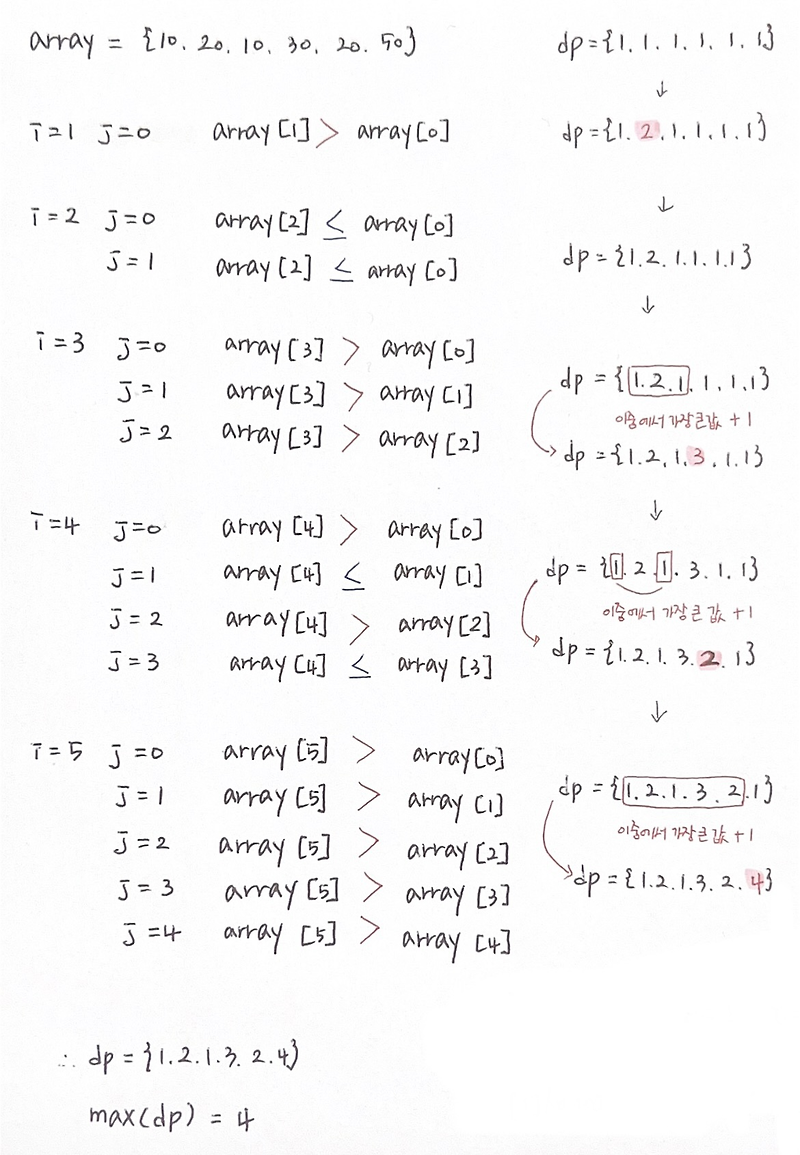 array = {10. 20. 10. 30. 20. 50}
dp={1. 1. 1. 1. 1. 1}
↓
i=1 j=0 array[1] > array[0]
dp={1. 2. 1. 1. 1. 1}
↓
i=2 j=0 array[2] ≤ array[0]
j=1 array[2] ≤ array[0]
dp={1. 2. 1. 1. 1. 1}
↓
i=3 j=0 array[3] > array[0]
j=1 array[3] > array[1]
j=2 array[3] > array[2]
dp={1. 2. 1. 1. 1. 1}
이중에서 가장 큰 값 +1
dp={1. 2. 1. 3. 1. 1}
↓
i=4 j=0 array[4] > array[0]
j=1 array[4] ≤ array[1]
j=2 array[4] > array[2]
j=3 array[4] ≤ array[3]
dp={1. 2. 1. 3. 1. 1}
이중에서 가장 큰 값 +1
dp={1. 2. 1. 3. 2. 1}
↓
i=5 j=0 array[5] > array[0]
j=1 array[5] > array[1]
j=2 array[5] > array[2]
j=3 array[5] > array[3]
j=4 array[5] > array[4]
dp={1. 2. 1. 3. 2. 1}
이중에서 가장 큰 값 +1
dp={1. 2. 1. 3. 2. 4}
∴ dp={1. 2. 1. 3. 2. 4}
max(dp) = 4